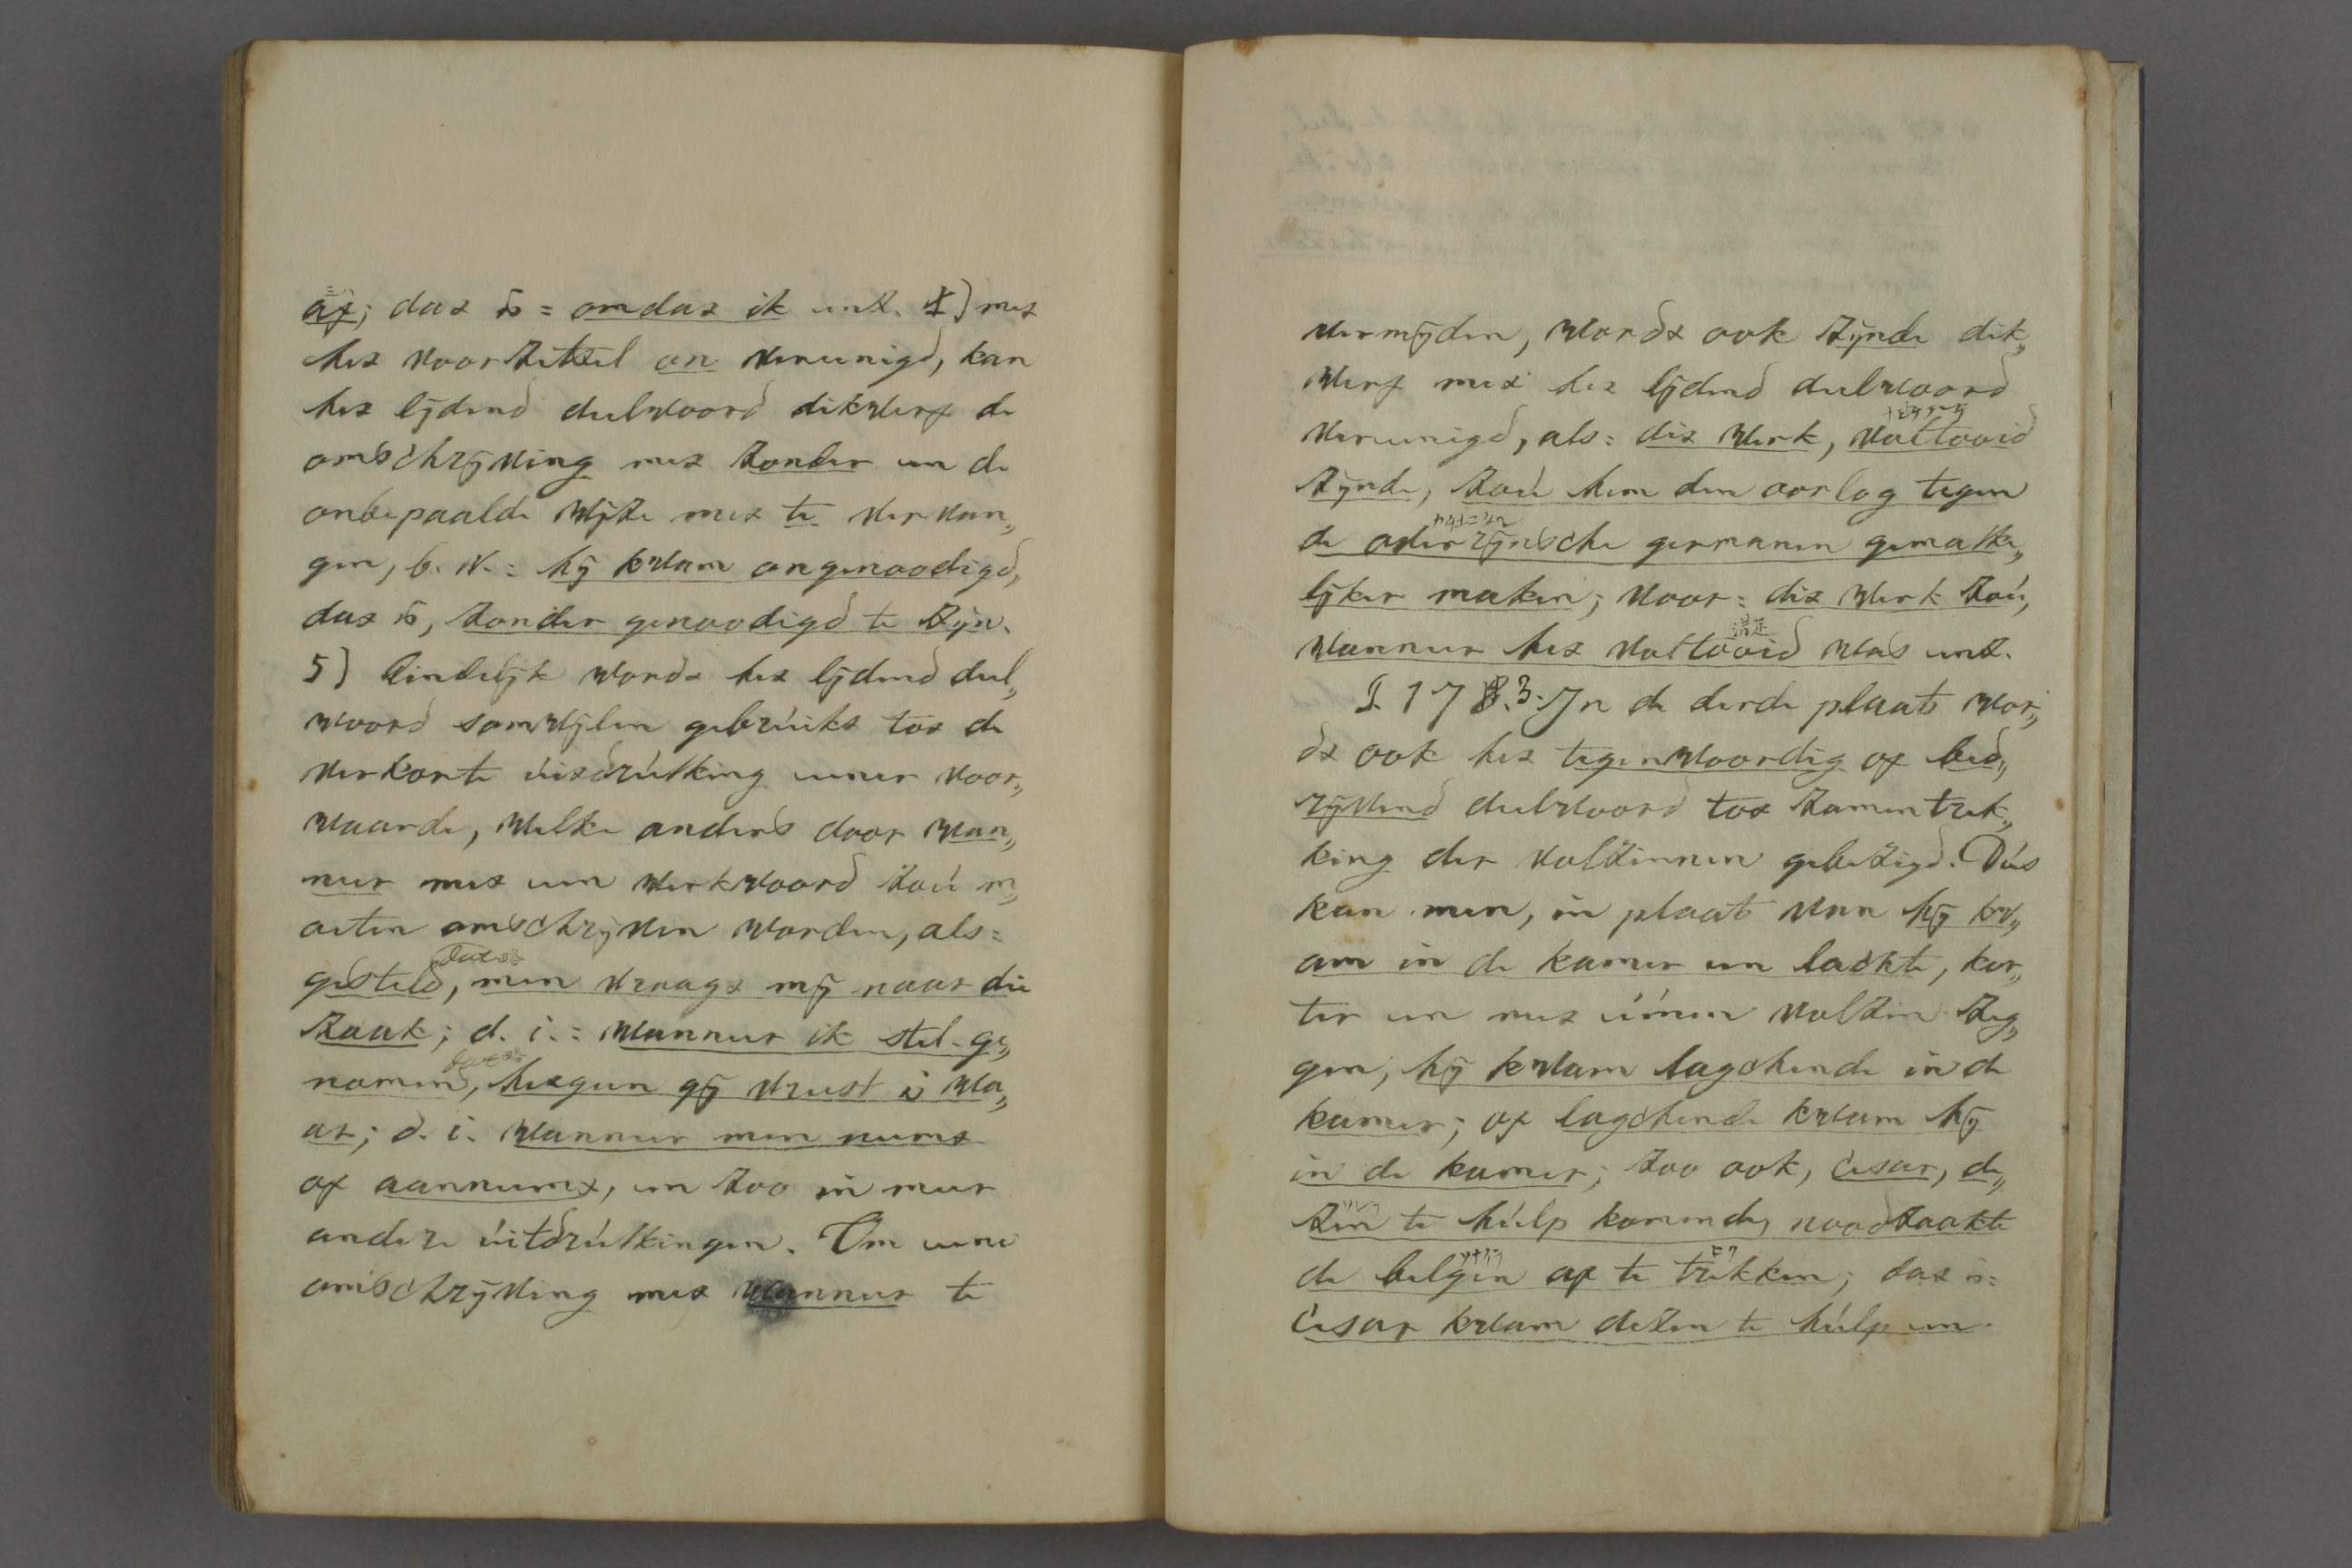 af; dat is = omdat ik enz. 4) met
het voorzetzel on vereenigd, kan
het lijdend deelwoord dikwerf de
omschrijving met zonder en de
onbepaalde wijze met te vervan„
gen, b. v. = hij kwam ongenoodigd,
dat is, zonder genoodigd te zijn.
5) Eindelijk wordt het lijdend deel„
woord somwijlen gebruikt tot de
verkorte uitdrukking eener voor„
waarde, welke anders door wan„
neer met een werkwoord zou m„
oeten omschrijven worden, als =
gesteld, men vraagt mij naar die
zaak; d. i. = wanneer ik stel. ge„
nomen, hetgeen gij vreest is wa„
ar; d. i. wanneer men neemt
of aanneemt, en zoo in meer
andere uitdrukkingen. Om eene
omschrijving met wanneer te
vermijden, wordt ook zijnde dik„
werf met het lijdend deelwoord
vereenigd, als = dit werk, voltooid
zijnde, zou hem den oorlog tegen
de overrijnsche germanen gemakke„
lijker maken; voor = dit werk zou,
満足
wanneer het voltooid was enz.
§. 178.3. In de derde plaats wor„
dt ook het tegenwoordig of bed„
rijvend deelwoord tot zamentrek„
king der volzinnen gebezigd. Dus
kan men, in plaats van hij kw„
am in de kamer en lachte, kor„
ter en met éénen volzin zeg„
gen, hij kwam lagchende in de
kamer; of lagchende kwam hij
in de kamer; zoo ook, cesar, de„
zen te hulp komende, noodzaakte
ヒク
de belgen af te trekken; dat is =
Cesar kwam dezen te hulp en